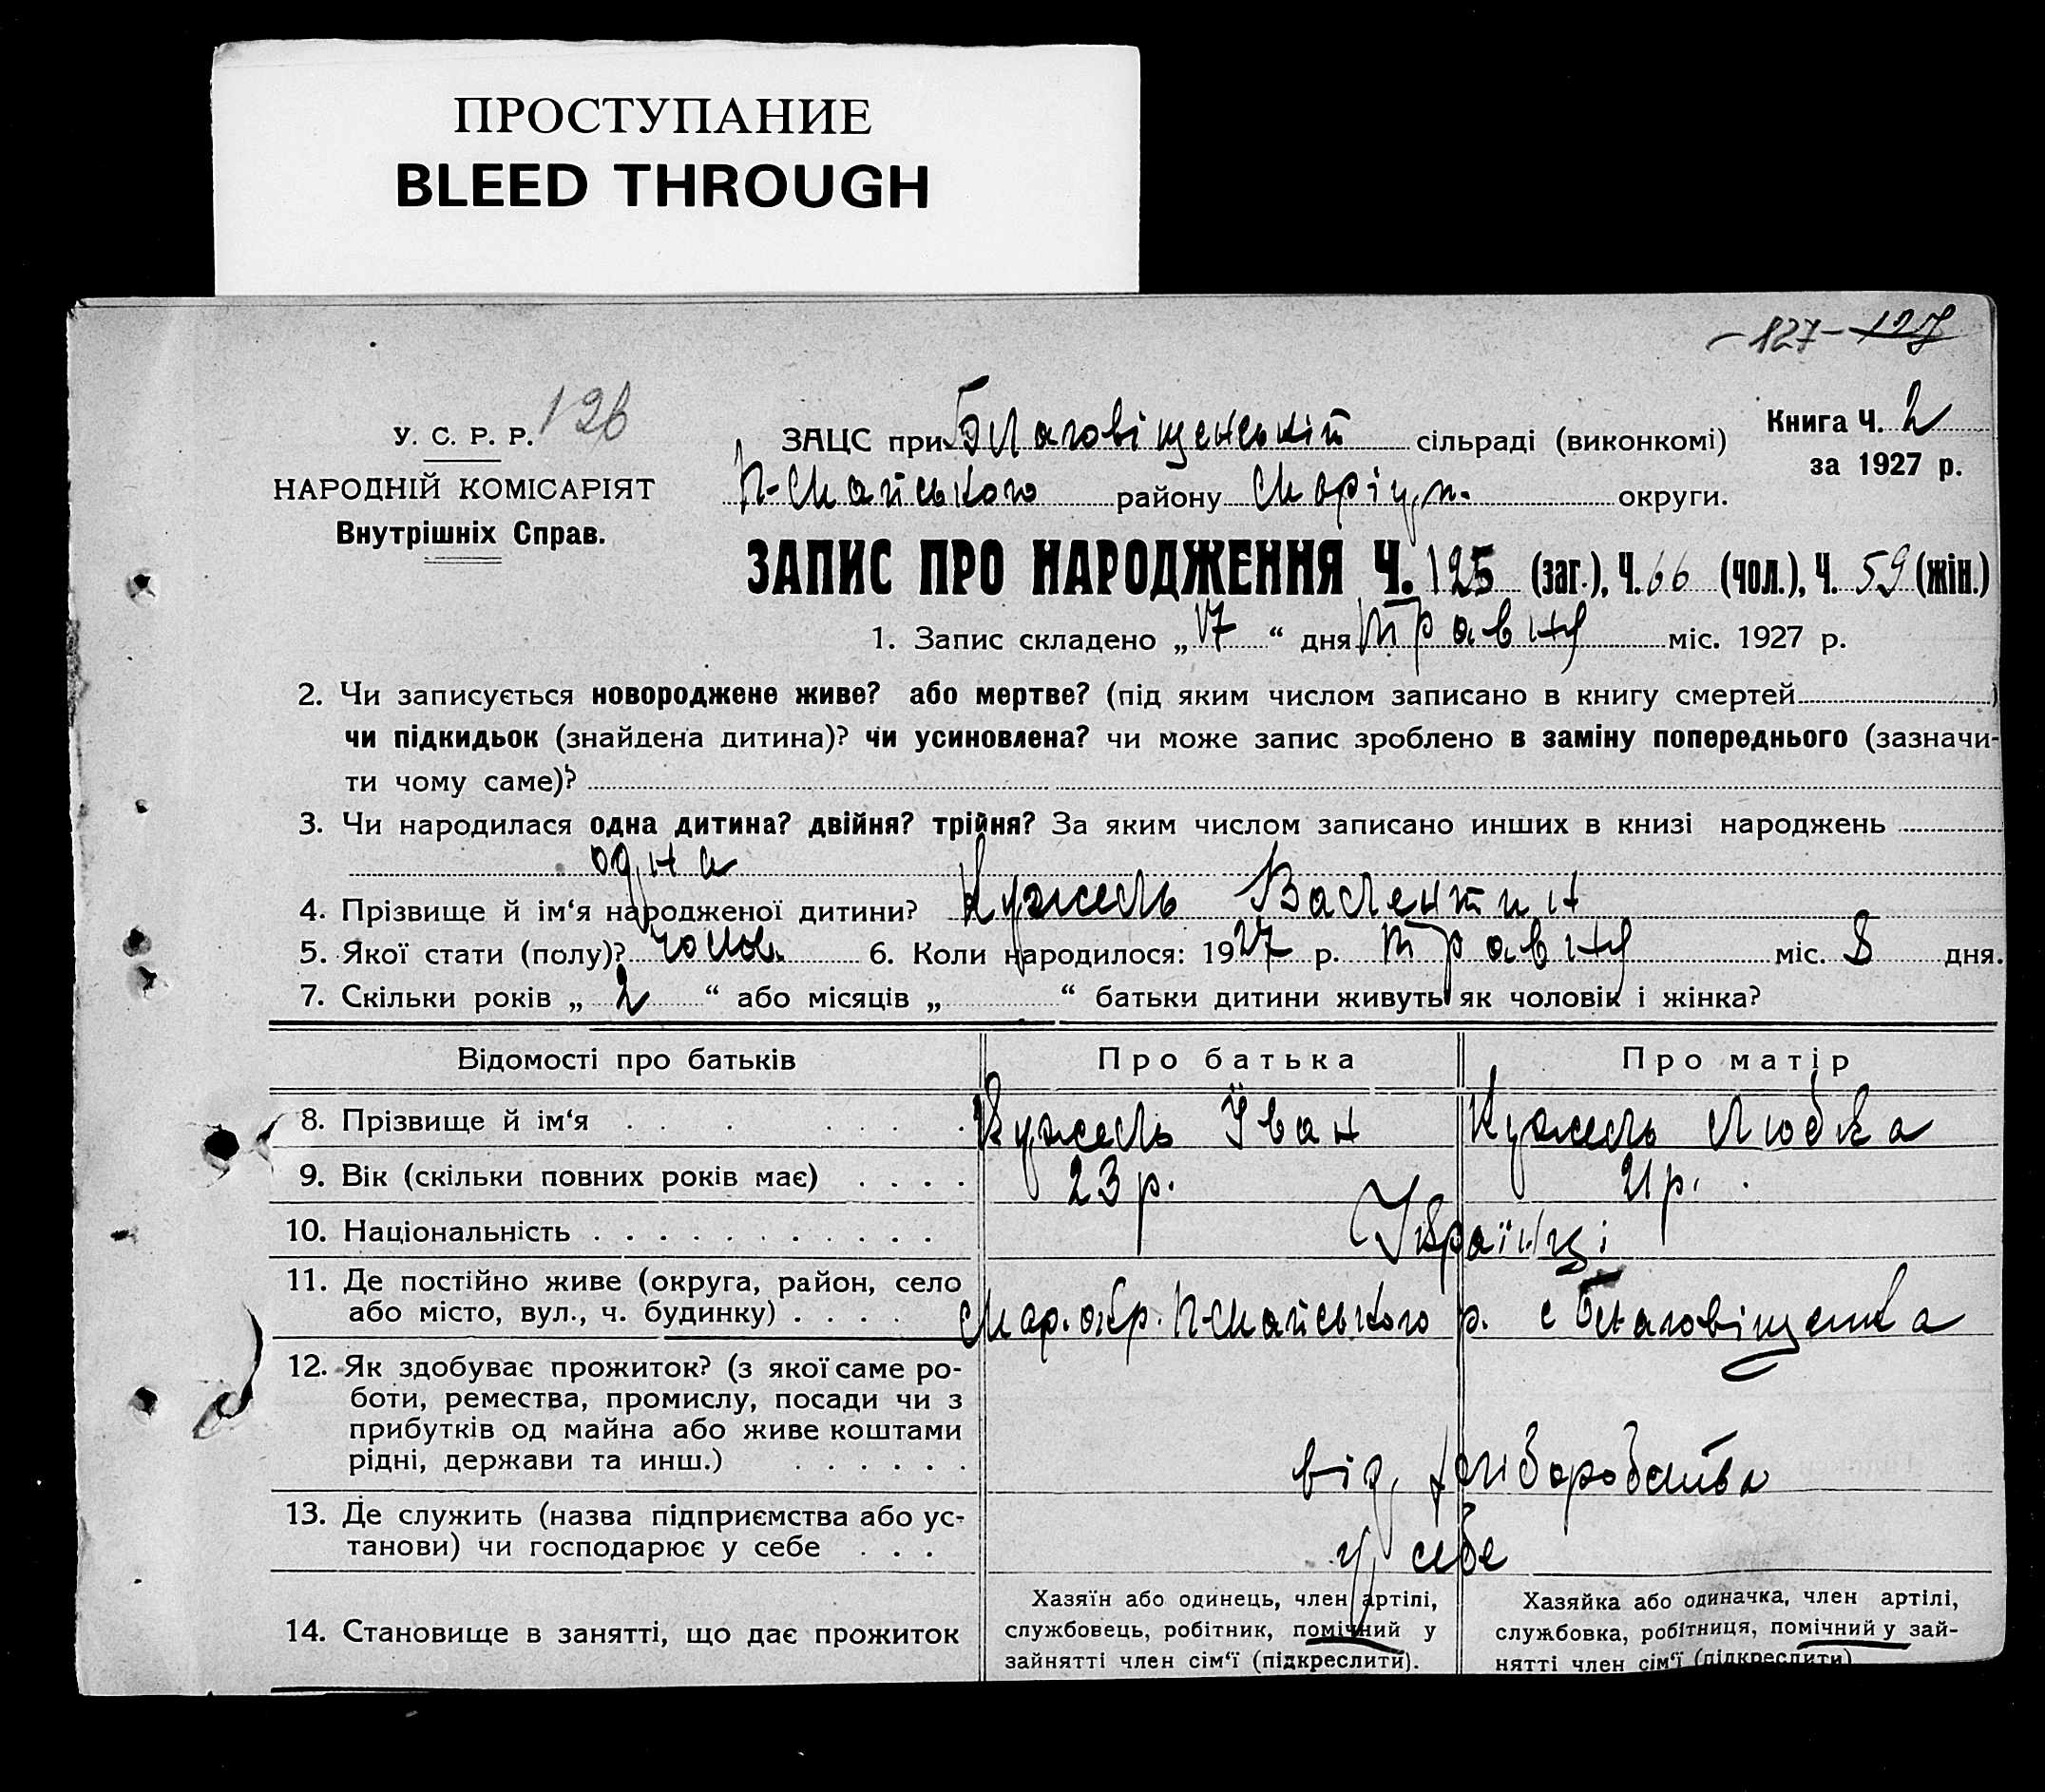 ПРОСТУПАНИЕ
BLEED THROUGH
-127- 127
126
У. С. Р. Р.
НАРОДНІЙ КОМІСАРІЯТ
Внутрішніх Справ.
ЗАЦС при Благовіщенській сільраді (виконкомі)
П-Майського району Маріуп. округи.
Книга Ч. 2
за 1927 р.
ЗАПИС ПРО НАРОДЖЕННЯ Ч. 125 (заг.), Ч. 66 (чол.), Ч. 59 (жін.)
1. Запис складено „ 17 “ дня травня міс. 1927 р.
2. Чи записується новороджене живе? або мертве? (під яким числом записано в книгу смертей )
чи підкидьок (знайдена дитина)? чи усиновлена? чи може запис зроблено в заміну попереднього (зазначи-
ти чому саме)?
3. Чи народилася одна дитина? двійня? трійня? За яким числом записано инших в книзі народжень
одна
4. Прізвище й ім‘я народженої дитини? Кужель Валентин
5. Якої стати (полу)? чолов. 6. Коли народилося: 1927 р. травня міс. 8 дня.
7. Скільки років „ 2 “ або місяців „ “ батьки дитини живуть як чоловік і жінка?
Відомості про батьків Про батька Про матір
8. Прізвище й ім‘я Кужель Іван Кужель Любка
9. Вік (скільки повних років має) 23 р. 21 р.
10. Національність Українці
11. Де постійно живе (округа, район, село
або місто, вул., ч. будинку) Мар. окр. П-Майського р. с Благовіщенка
12. Як здобуває прожиток? (з якої саме ро-
боти, ремества, промислу, посади чи з
прибутків од майна або живе коштами
рідні, держави та инш.) від хліборобства
13. Де служить (назва підприємства або ус-
танови) чи господарює у себе у себе
14. Становище в занятті, що дає прожиток
Хазяїн або одинець, член артілі,
службовець, робітник, помічний у
зайнятті член сім‘ї (підкреслити).
Хазяйка або одиначка, член артілі,
службовка, робітниця, помічний у зай-
нятті член сім‘ї (підкреслити)